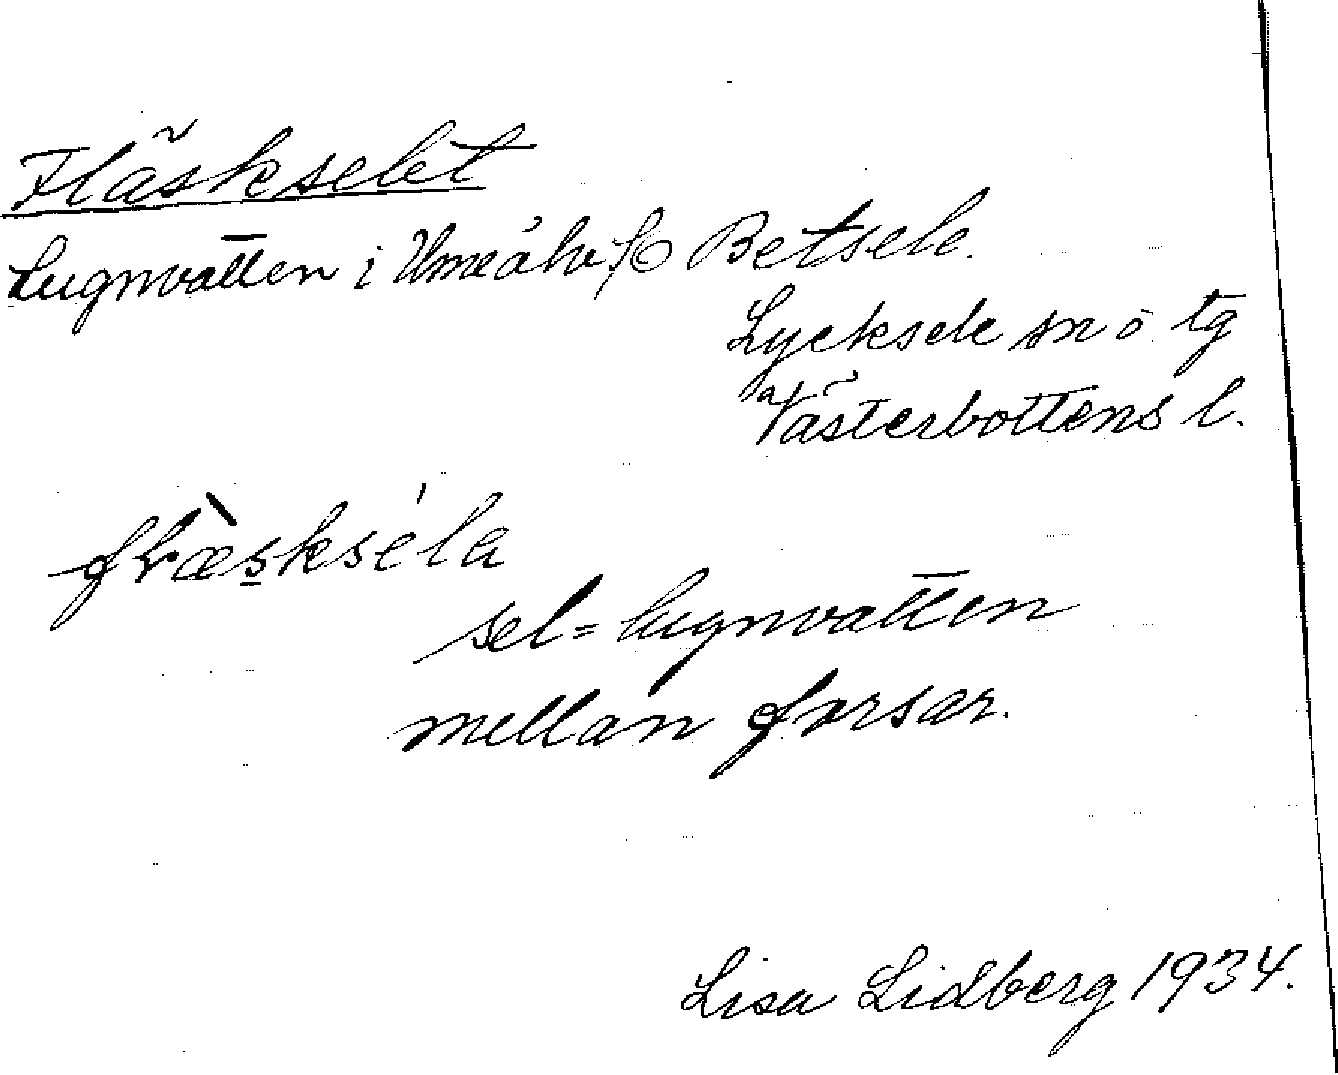 Fläskselet
Lugnvatten i Umeälv f. Ö Betsele.
Lycksele sn o tg
Västerbottens l.
flæskséla
sel = lugnvatten
mellan forsar.
Lisa Lidberg 1934.